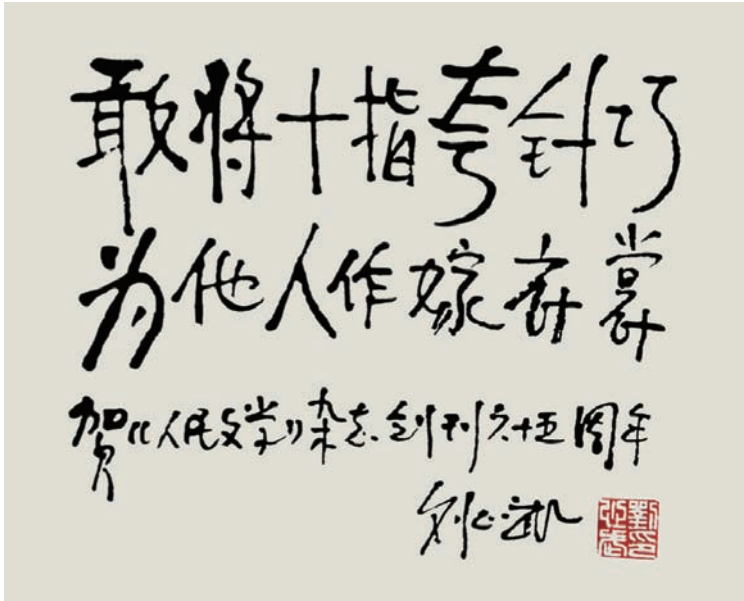 敢将十指夸针巧
为他人作嫁衣裳
贺《人民文学》杂志创刊六十五周年
刘心武